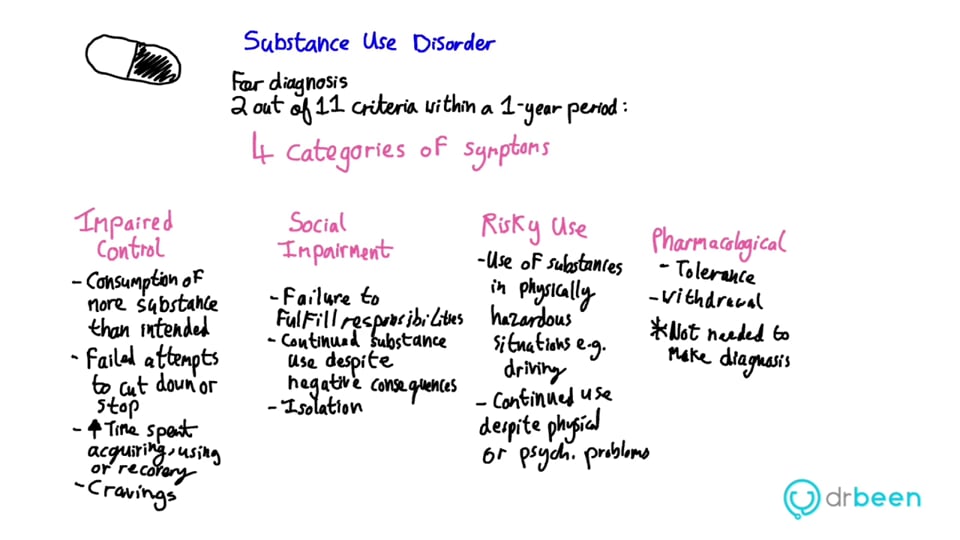 Substance Use Disorder
For diagnosis
2 out of 11 criteria within a 1-year period:
4 categories of symptoms
Impaired
Control
- Consumption of
more substance
than intended
- Failed attempts
to cut down or
stop
- ↑ Time spent
acquiring, using
or recovery
- Cravings
Social
Impairment
- Failure to
fulfill responcibilities
- Continued substance
use despite
negative consequences
- Isolation
Risky Use
- Use of substances
in physically
hazardous
situations e.g.
driving
- Continued use
despite physical
or psych. problems
Pharmacological
- Tolerance
- Withdrawal
*Not needed to
make diagnosis
drbeen